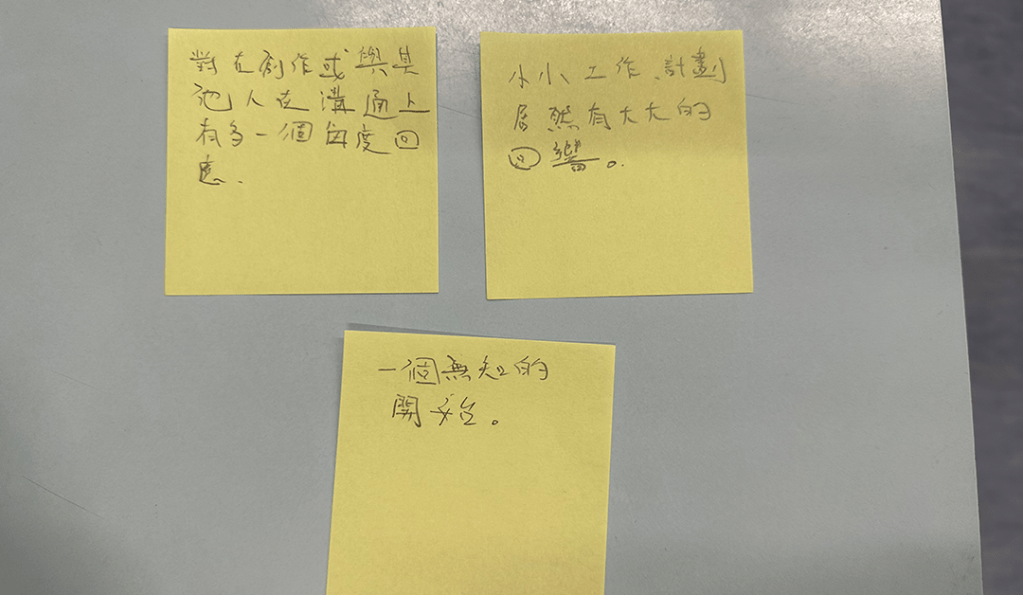 對在創作或與其
他人在溝通上
有多一個角度回
應.
小小工作計劃
居然有大大的
回響。
一個無知的
開始。